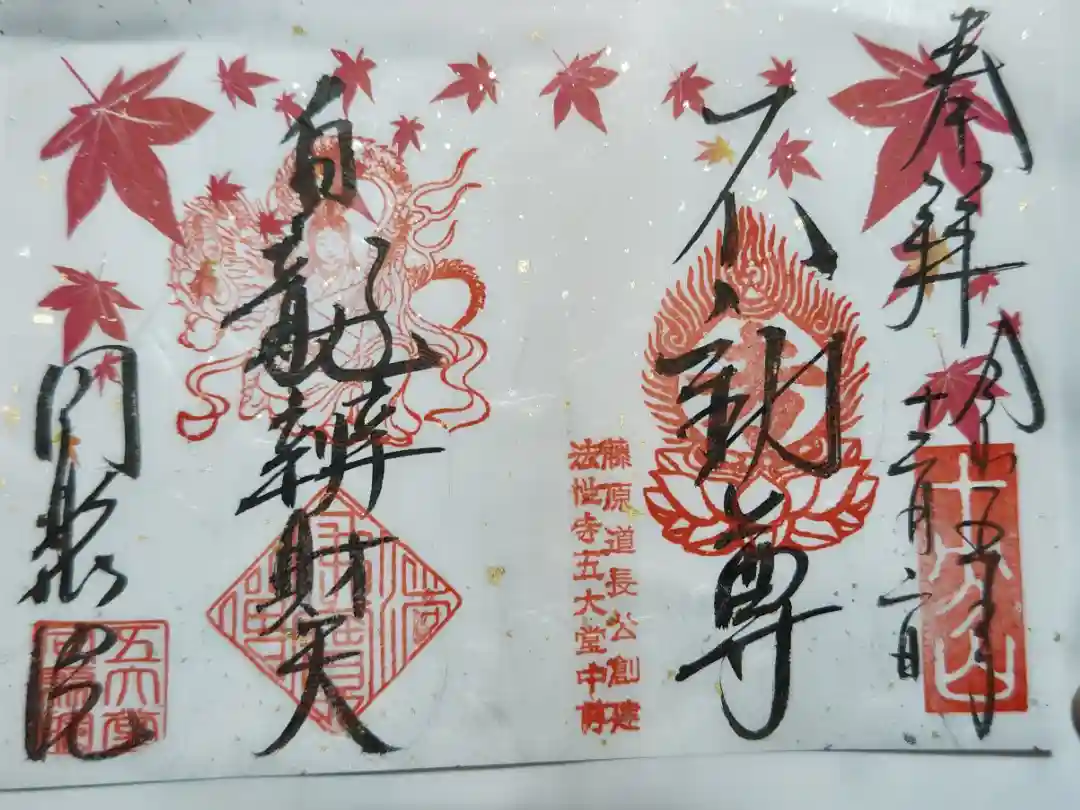 奉拝
令和五年
十二月二日
不動尊
藤原道長公創建
法性寺五大堂中尊
白龍辨財天
同聚院
五大堂
同聚院